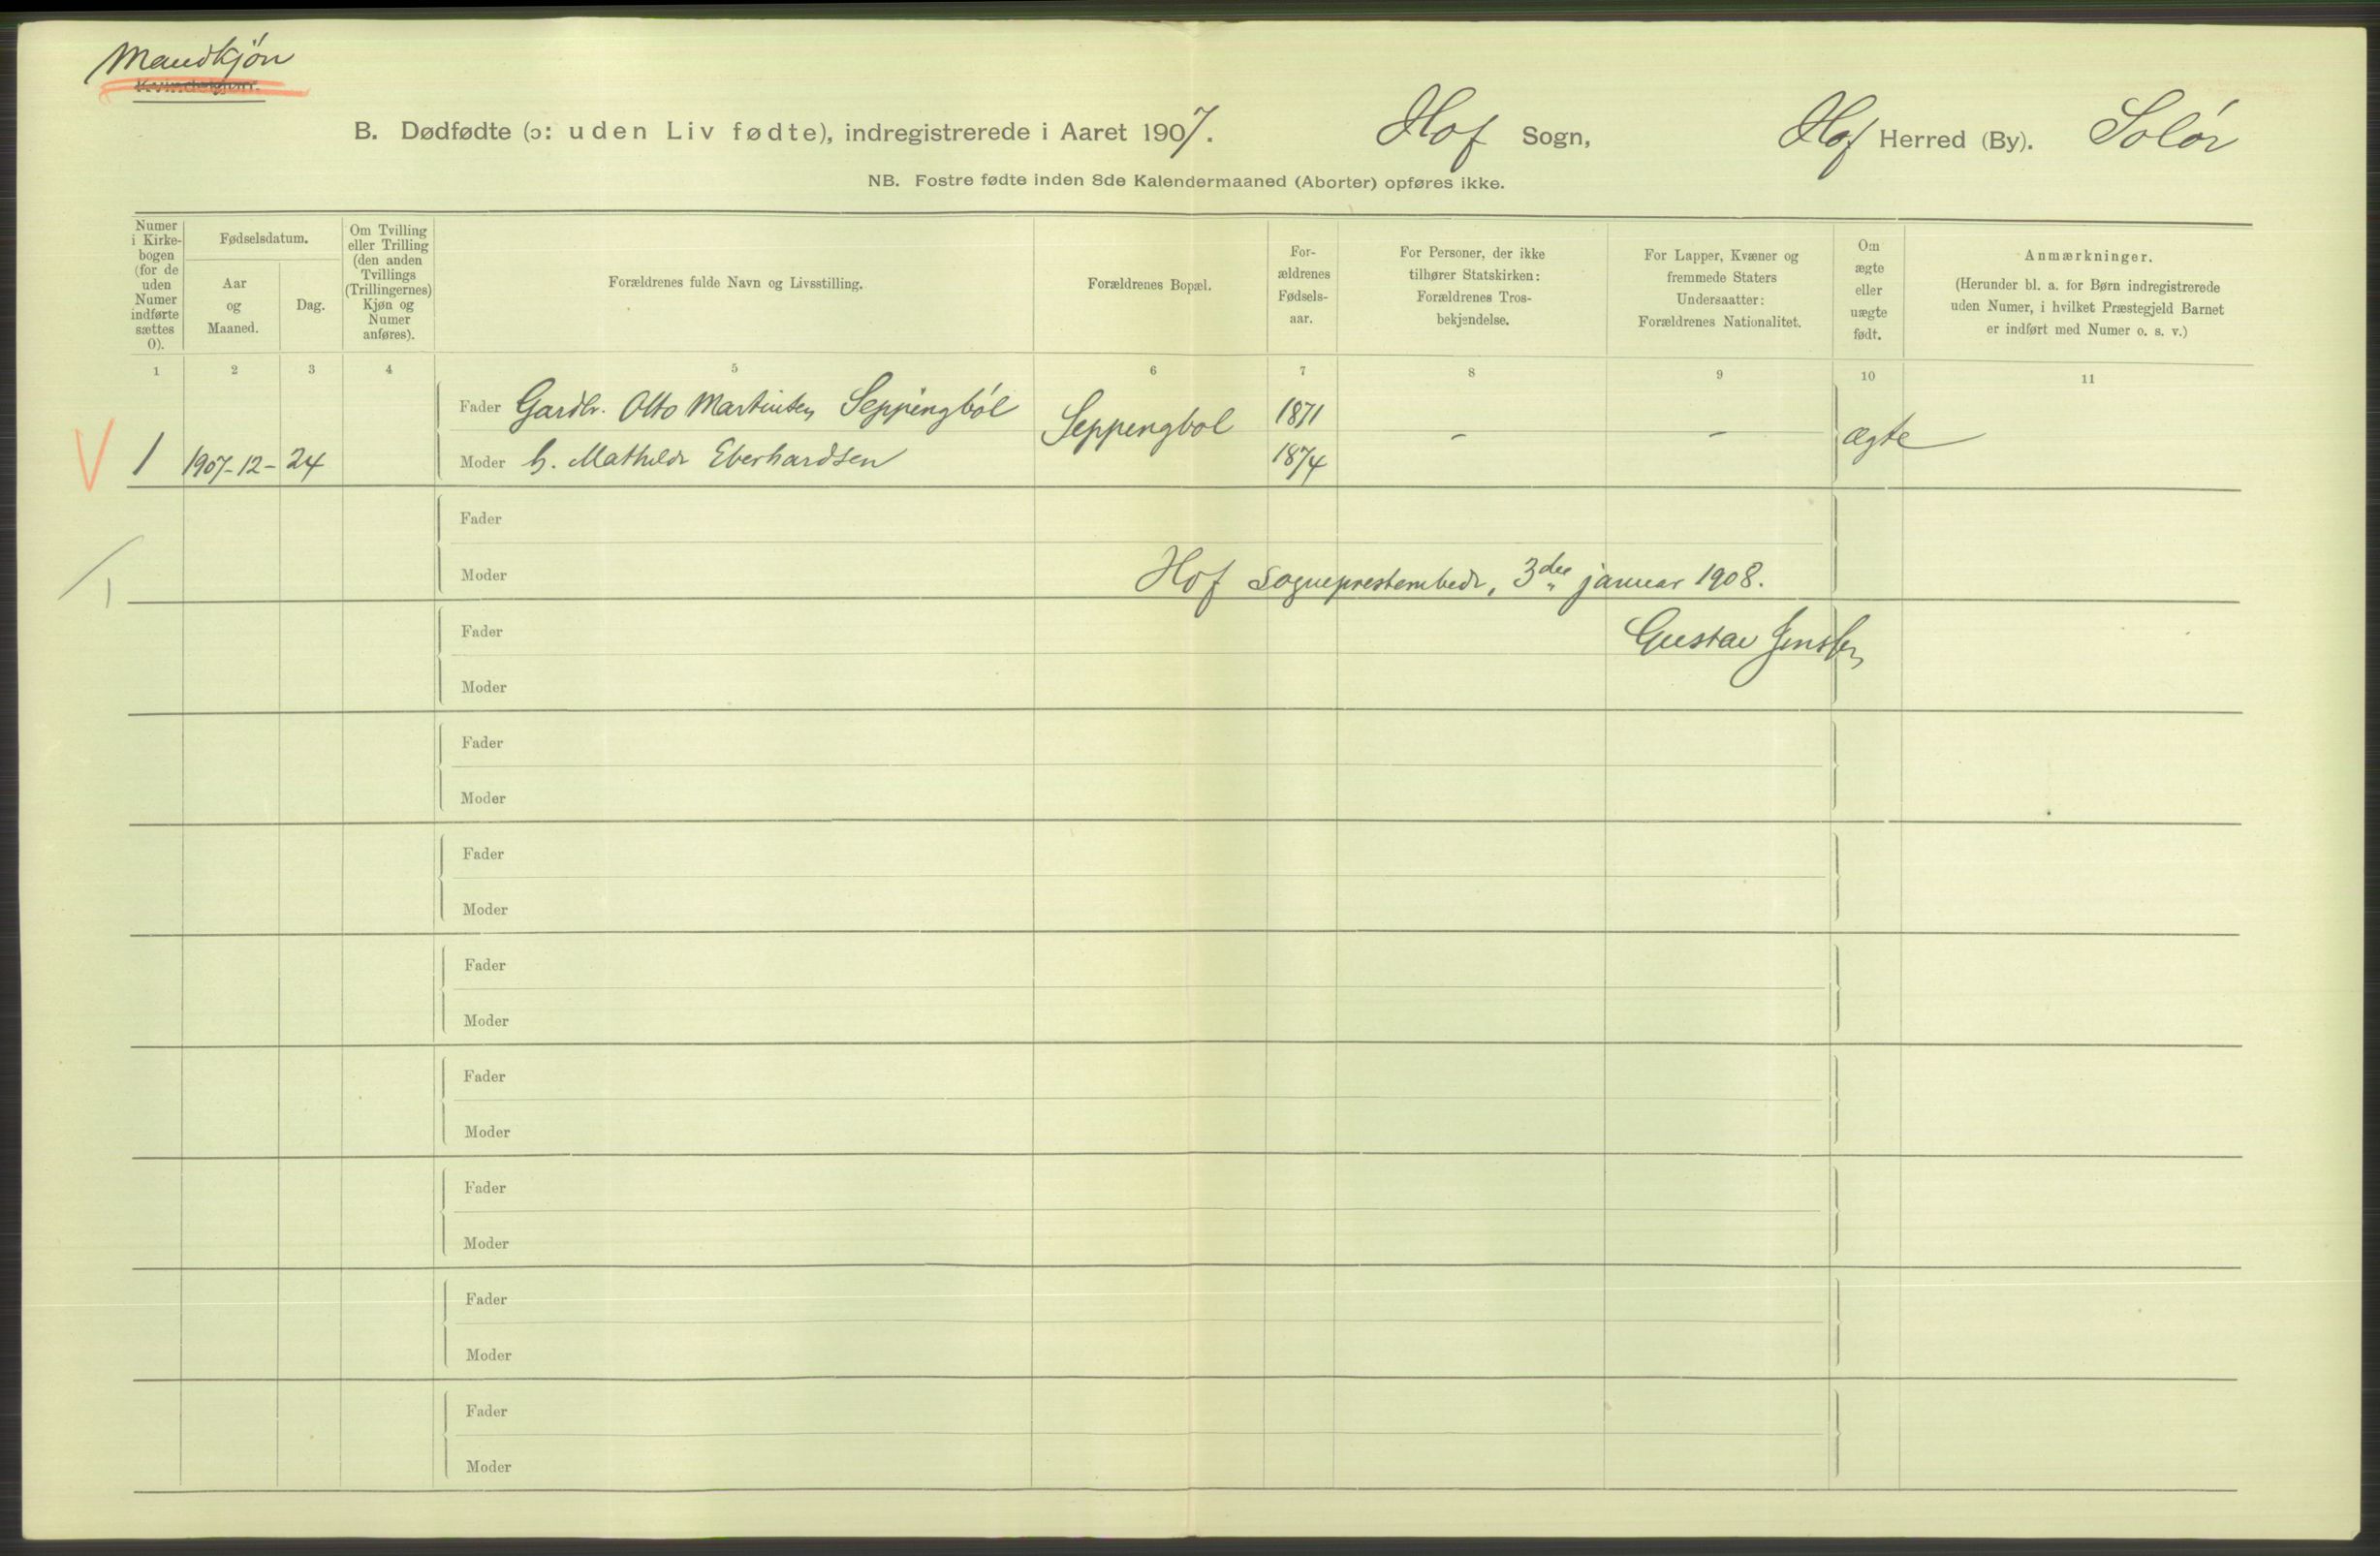 Mandkjøn
Kvindekjøn.
B. Dødfødte (ɔ: uden Liv fødte), indregistrerede i Aaret 1907. Hof Sogn, Hof Herred (By). Solør
NB. Fostre fødte inden 8de Kalendermaaned (Aborter) opføres ikke.
Numer
i Kirke-
bogen
(for de
uden
Numer
indførte
sættes
0).
Fødselsdatum.
Aar
og
Maaned.
Dag.
Om Tvilling
eller Trilling
(den anden
Tvillings
(Trillingernes)
Kjøn og
Numer
anføres).
Forældrenes fulde Navn og Livsstilling.
Forældrenes Bopæl.
For-
ældrenes
Fødsels-
aar.
For Personer, der ikke
tilhører Statskirken:
Forældrenes Tros-
bekjendelse.
For Lapper, Kvæner og
fremmede Staters
Undersaatter:
Forældrenes Nationalitet.
Om
ægte
eller
uægte
født.
Anmærkninger.
(Herunder bl. a. for Børn indregistrerede
uden Numer, i hvilket Præstegjeld Barnet
er indført med Numer o. s. v.)
1 2 3 4 5 6 7 8 9 10 11
Fader Gardbr. Otto Martinsen Seppingbøl Seppengbol 1871
V 1 1907-12-24 Moder h. Mathilde Eberhardsen 1874 - - ægte
Fader
Moder Hof sogneprestembede, 3die januar 1908.
1
Fader Gustav Jensen
Moder
Fader
Moder
Fader
Moder
Fader
Moder
Fader
Moder
Fader
Moder
Fader
Moder
Fader
Moder